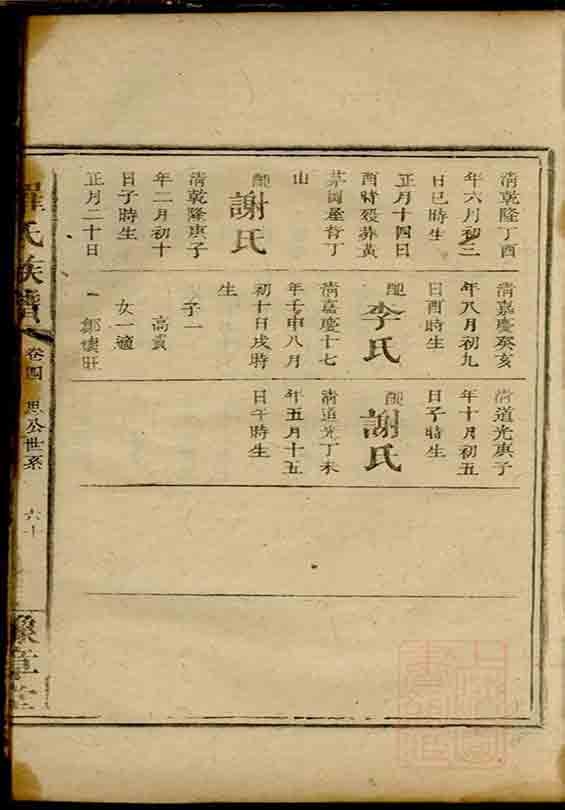 清乾隆丁酉
年六月初三
日巳時生
正月十四日
酉時歿葬黃
茅岡屋背丁
山
配
謝氏
清乾隆庚子
年二月初十
日子時生
正月二十日
清嘉慶癸亥
年八月初九
日酉時生
配
李氏
清嘉慶十七
年壬申八月
初十日戌時
生
子一
高
女一適
清道光庚子
年十月初五
日子時生
配
謝氏
清道光丁未
年五月十五
日午時生
羅氏族譜
卷四
思公世系
六十
豫章堂